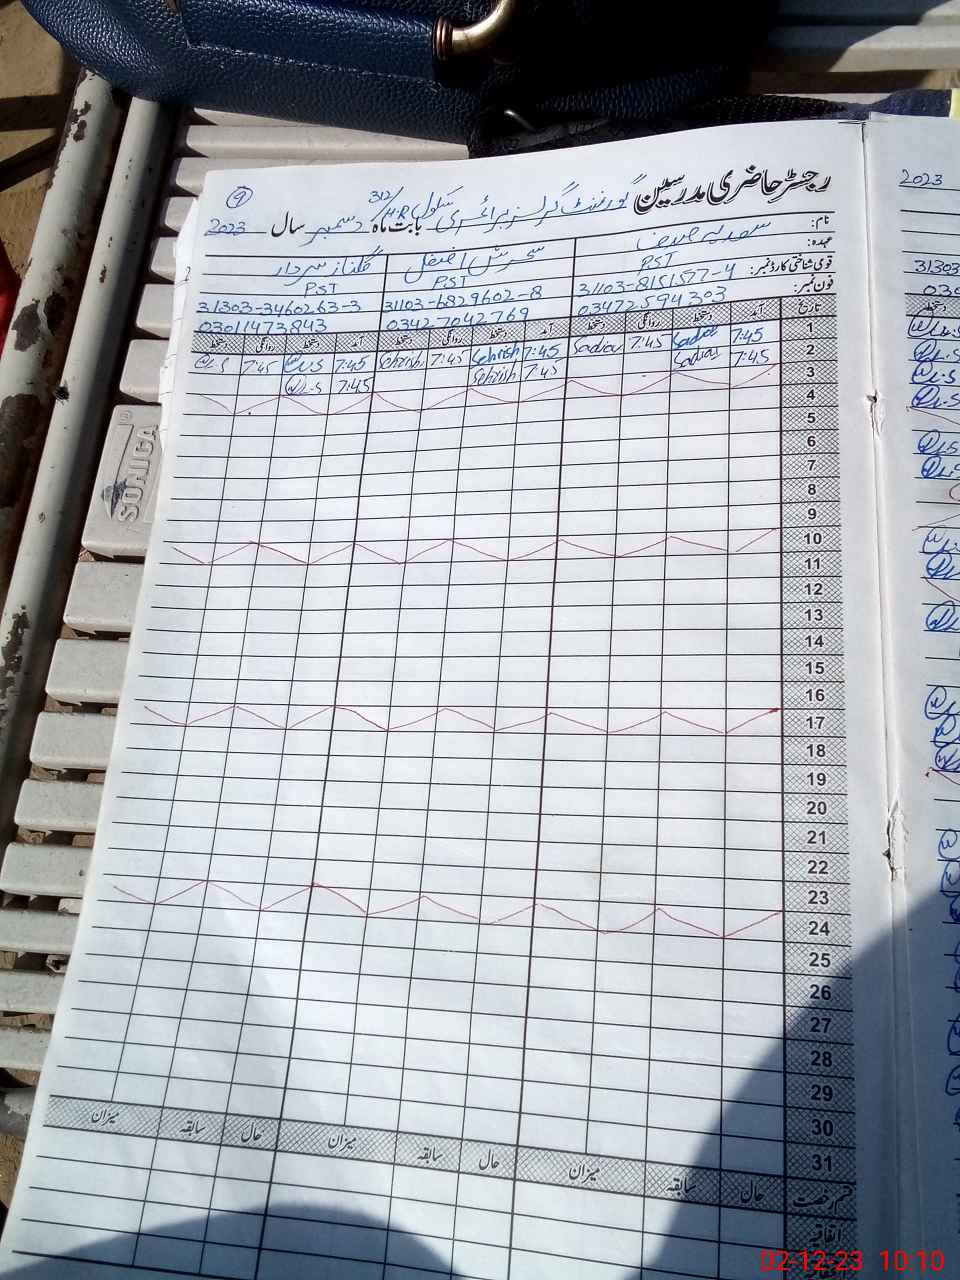 رجسٹر حاضری مدرسین گورنمنٹ گرلز پرائمری سکول 312/HR
9
بابت ماہ دسمبر سال 2023
نام: سعدیہ سحرش افضل گلناز سردار
عہدہ: PST PST PST
قومی شناختی کارڈ نمبر: 31103-8151577-4 31103-6829602-8 31303-3460263-3
فون نمبر: 03472594303 0342-7042769 03011473843
تاریخ آمد دستخط روانگی دستخط آمد دستخط روانگی دستخط آمد دستخط روانگی دستخط
1 7:45 Sadia 7:45 Sadia 7:45 Sehrish 7:45 Sehrish 7:45 7:45
2 7:45 Sadia 7:45 Sehrish 7:45
3
4
5
6
7
8
9
10
11
12
13
14
15
16
17
18
19
20
21
22
23
24
25
26
27
28
29
30
31
قسم رخصت حال سابقہ میزان حال سابقہ میزان حال سابقہ میزان
اتفاقیہ
2023
31303
030
دستخط
SONICA
02-12-23 10:10